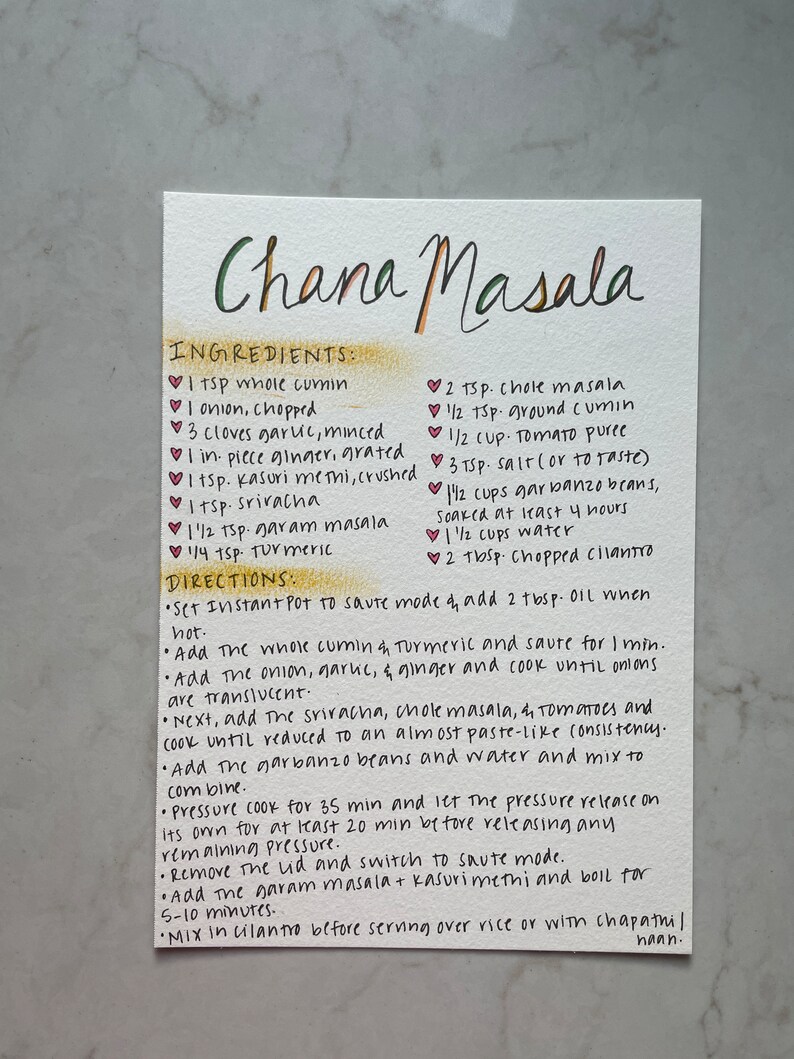 Chana Masala
INGREDIENTS:
1 tsp whole cumin
1 onion, chopped
3 cloves garlic, minced
1 in. piece ginger, grated
1 tsp. kasuri methi, crushed
1 tsp. sriracha
1 1/2 tsp. garam masala
1/4 tsp. turmeric
2 tsp. chole masala
1/2 tsp. ground cumin
1/2 cup. tomato puree
3 tsp. salt (or to taste)
1 1/2 cups garbanzo beans,
soaked at least 4 hours
1 1/2 cups water
2 tbsp. chopped cilantro
DIRECTIONS:
• Set InstantPot to saute mode & add 2 tbsp. oil when
hot.
• Add the whole cumin & turmeric and saute for 1 min.
• Add the onion, garlic, & ginger and cook until onions
are translucent.
• Next, add the sriracha, chole masala, & tomatoes and
cook until reduced to an almost paste-like consistency.
• Add the garbanzo beans and water and mix to
combine.
• Pressure cook for 35 min and let the pressure release on
its own for at least 20 min before releasing any
remaining pressure.
• Remove the lid and switch to saute mode.
• Add the garam masala + kasuri methi and boil for
5-10 minutes.
• Mix in cilantro before serving over rice or with chapathi/
naan.